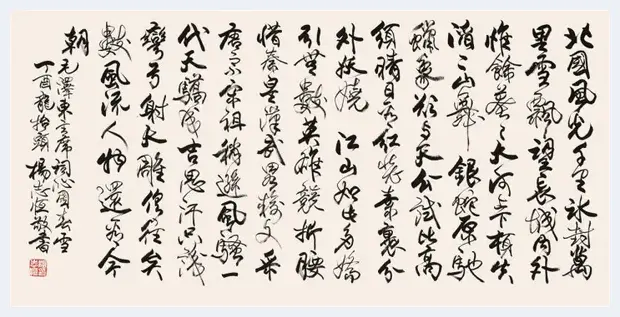 北國風光千里冰封萬
里雪飄望長城內外
惟餘莽々大河上下頓失
滔々山舞銀蛇原馳
蠟象欲與天公試比高
須晴日看紅裝素裹分
外妖嬈 江山如此多嬌
引無數英雄競折腰
惜秦皇漢武略輸文采
唐宗宋祖稍遜風騷一
代天驕成吉思汗只識
彎弓射大雕俱往矣
數風流人物還看今
朝
毛澤東主席詞沁園春雪
丁酉龍抬頭 楊志恒敬書